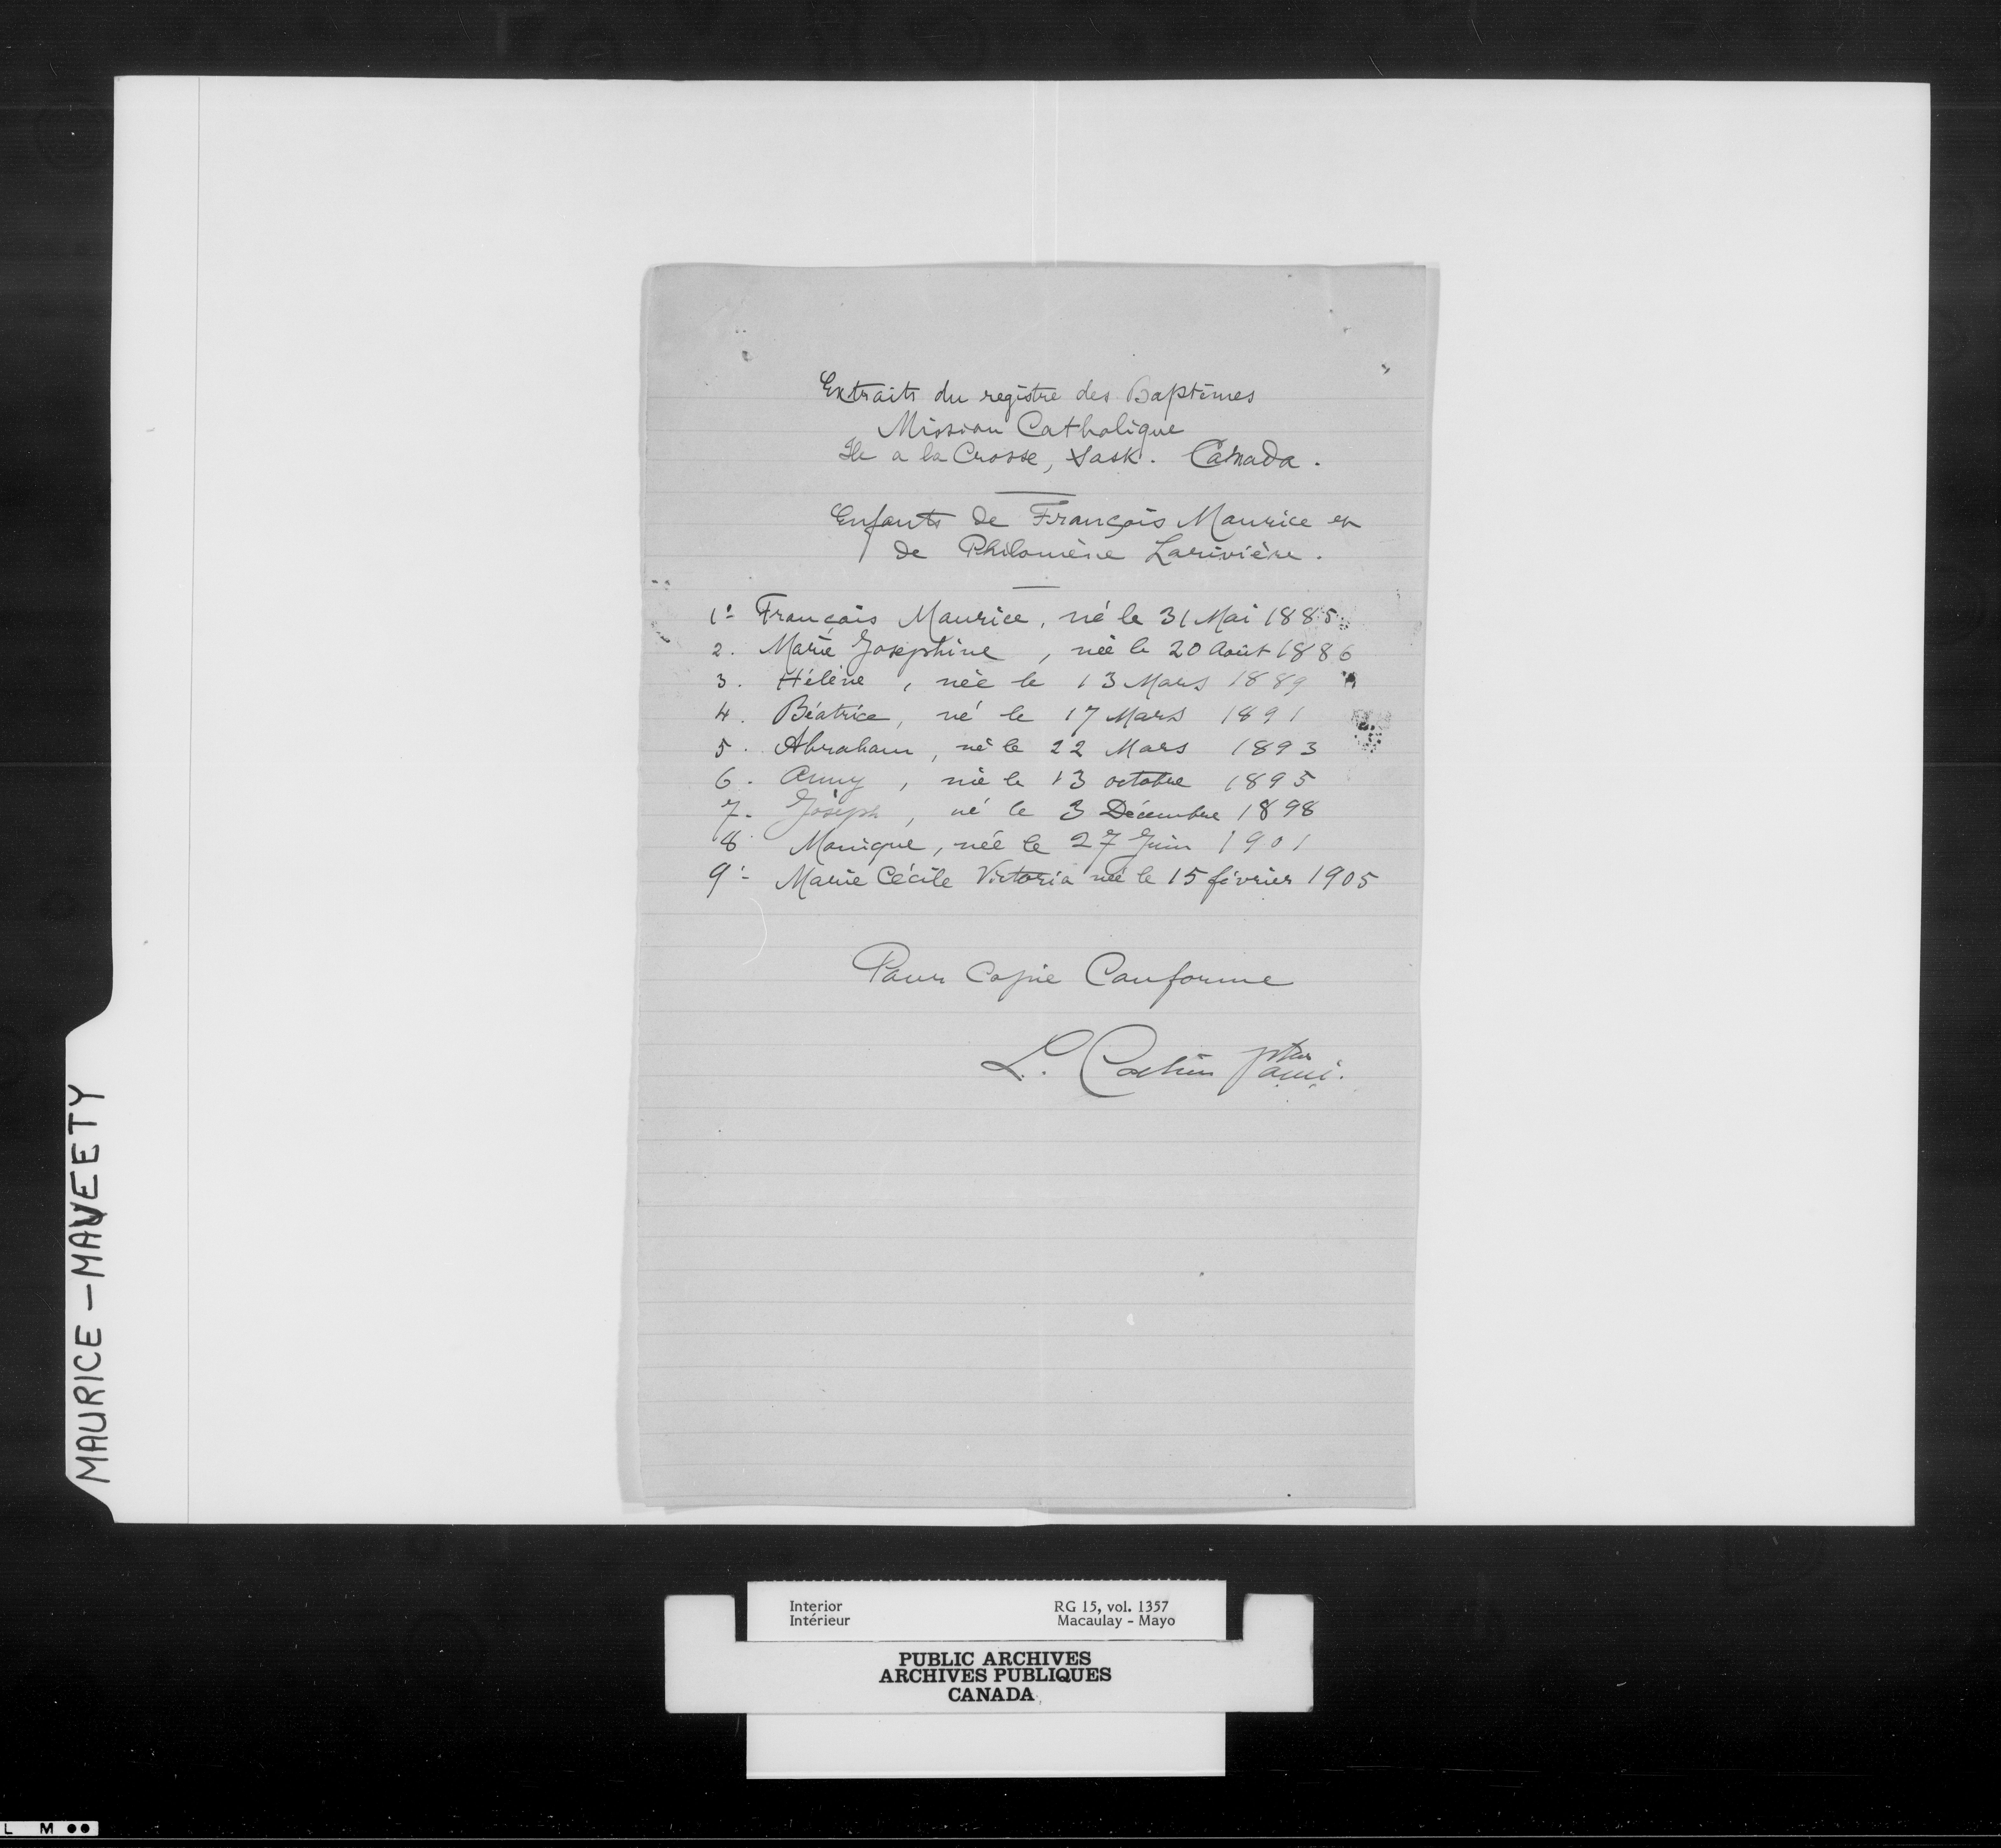 Extraits du registre des Baptêmes
Mission Catholique
Ile a la Crosse, Sask. Canada.
Enfants de François Maurice et
de Philomène Larivière.
1º François Maurice, né le 31 Mai 1885
2. Marie Josephine, née le 20 Août 1886
3. Hélène, née le 13 Mars 1889
4. Béatrice, né le 17 Mars 1891
5. Abraham, né le 22 Mars 1893
6. Anny, née le 13 octobre 1895
7. Joseph, né le 3 Décembre 1898
8 Monique, née le 27 Juin 1901
9º- Marie Cécile Victoria née le 15 février 1905
Pour Copie Conforme
L. Cochin ptre
o.m.i.
MAURICE - MAVEETY
Interior RG 15, vol. 1357
Intérieur Macaulay - Mayo
PUBLIC ARCHIVES
ARCHIVES PUBLIQUES
CANADA
L M